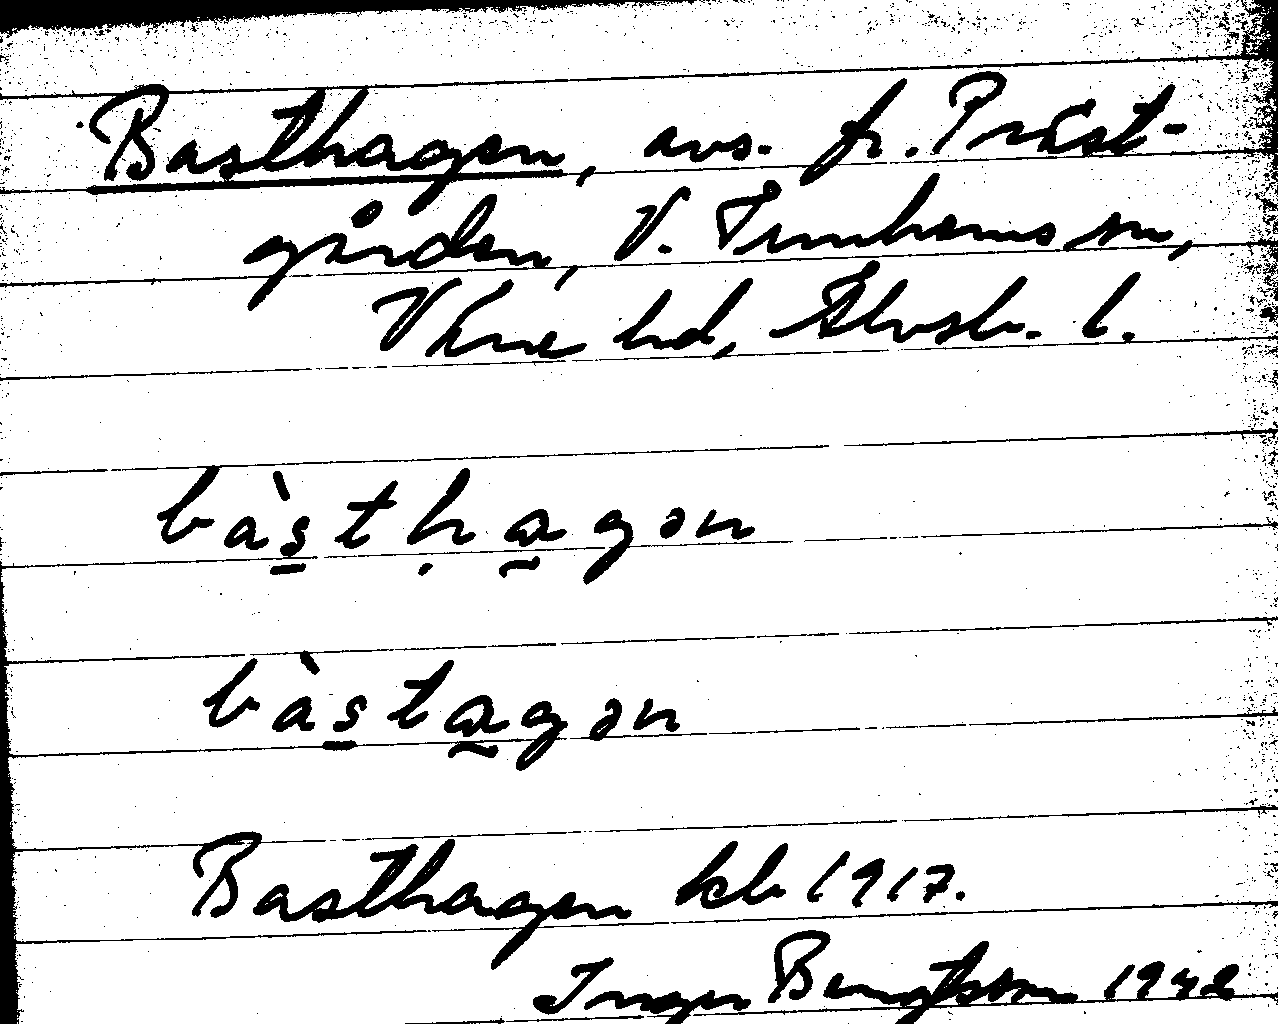 Basthagen, avs. fr. Präst-
gården, V. Tunhems sn,
Väne hd, Älvsb. l.
bàs̱tḥa̰gən
bàs̱ta̰gən
Basthagen kb 1917.
Inger Bengtsson 1942